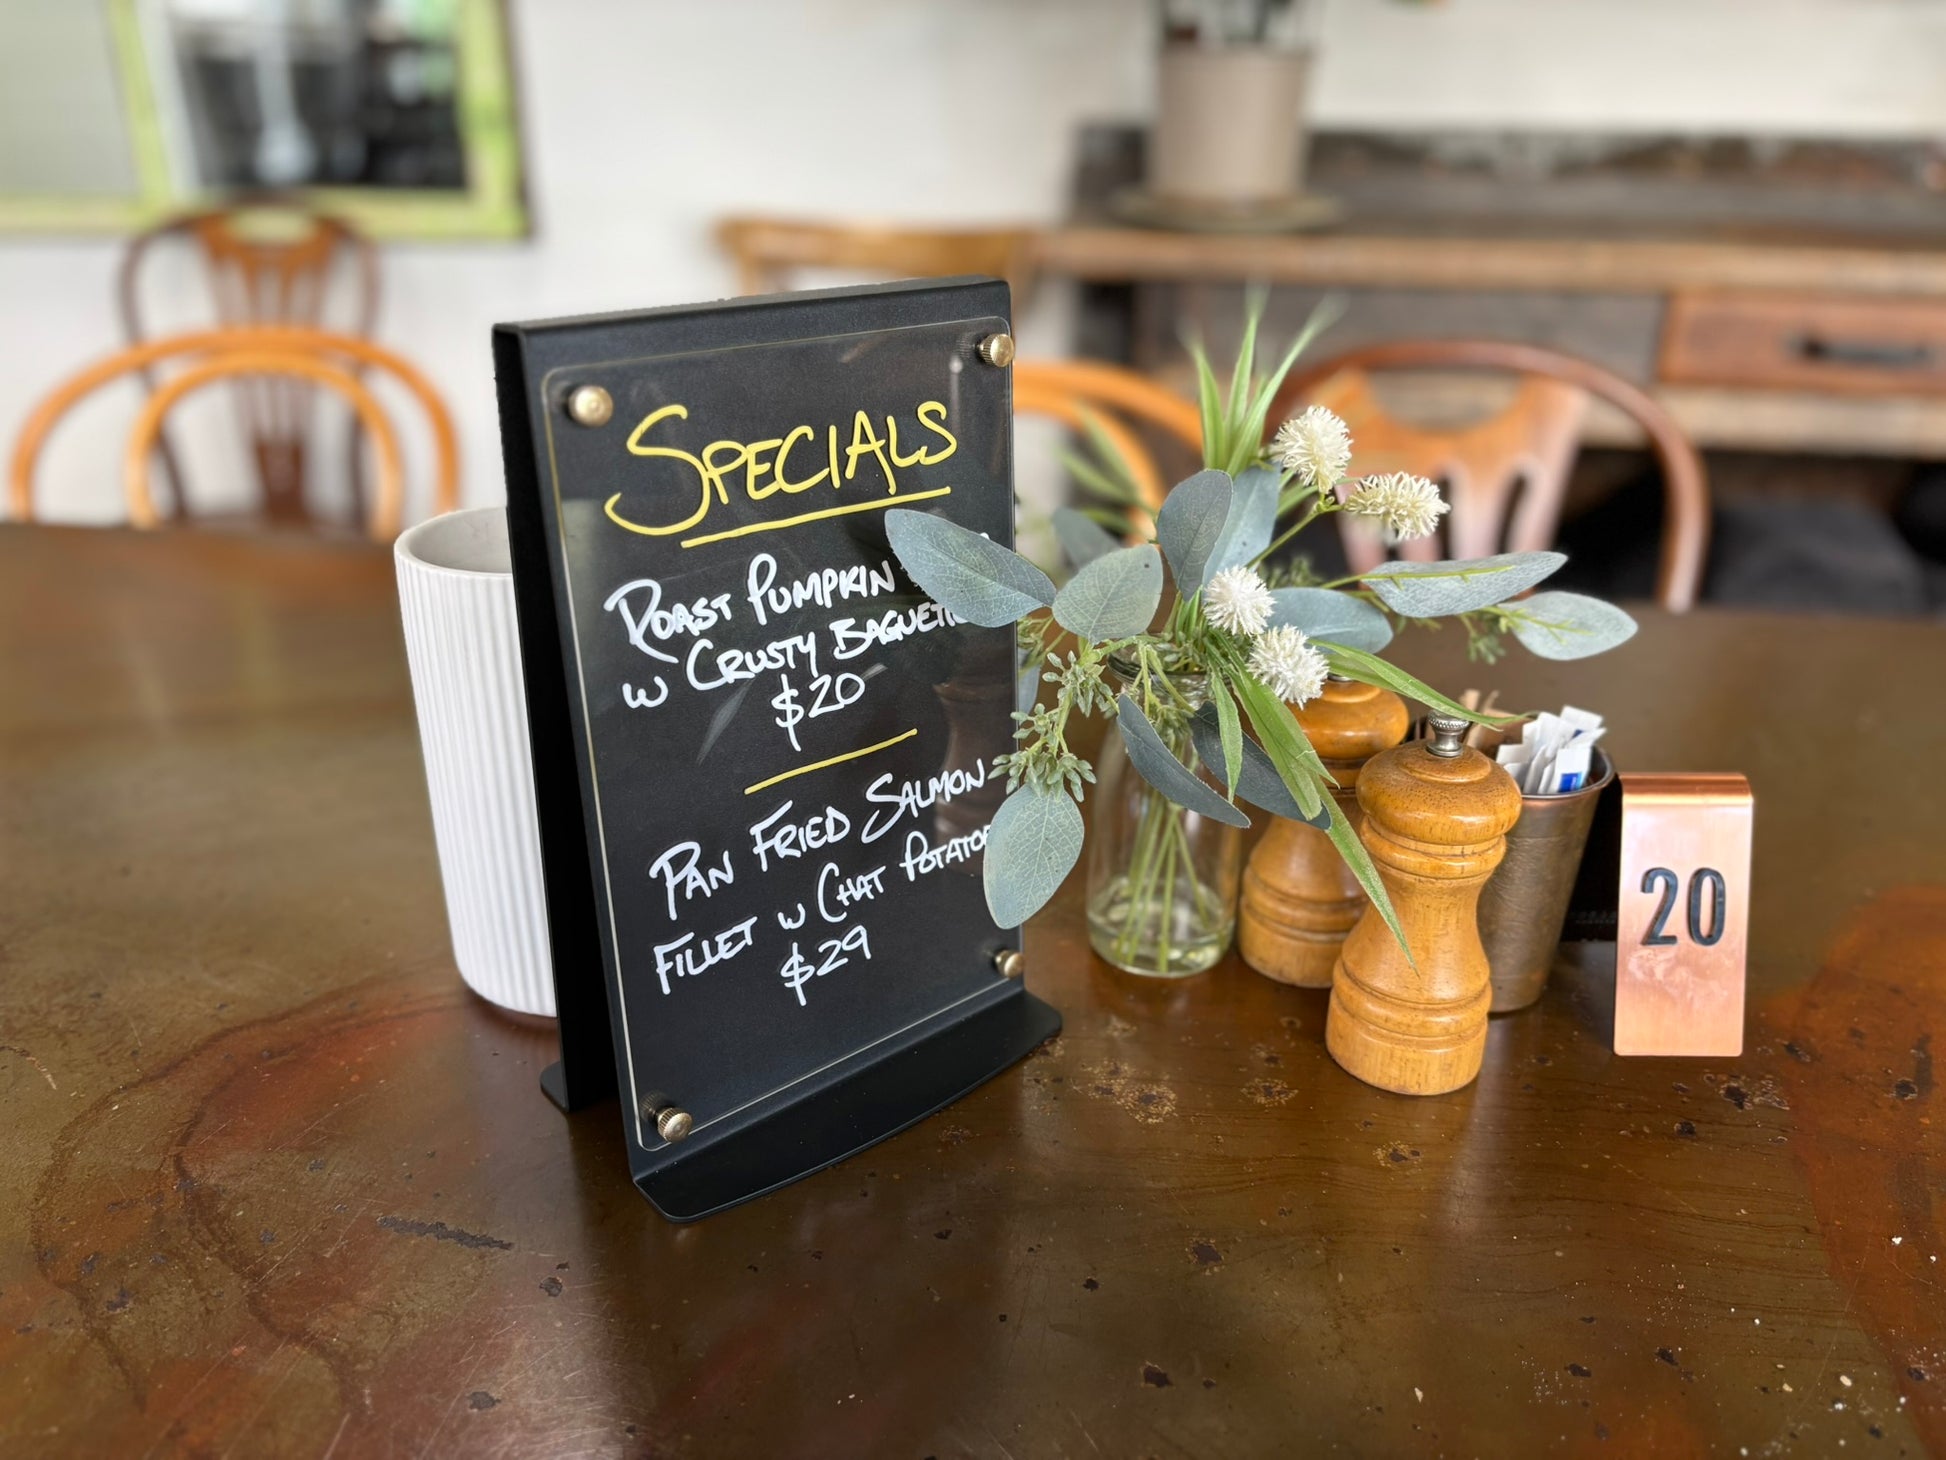 SPECIALS
ROAST PUMPKIN
W CRUSTY BAGUETTE
$20
PAN FRIED SALMON
FILLET W CHAT POTATOES
$29
20